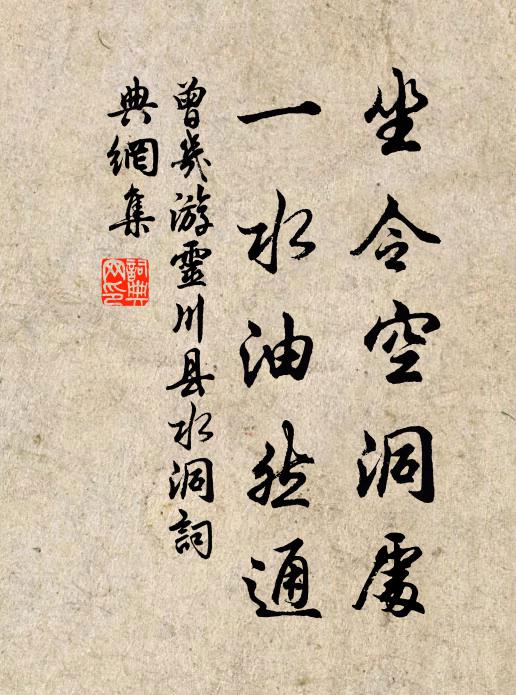 坐令空洞處
一水油然通
曾幾游靈川县水洞詞
典網集
詞典
网印